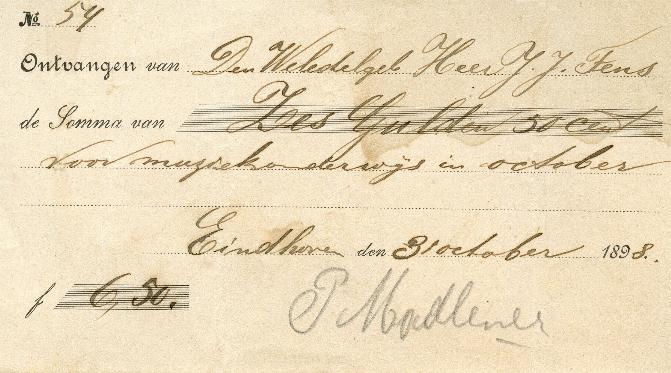 No 54
Ontvangen van Den Weledelgeb Heer J. J. Fens
de Somma van Zes Gulden 50 cent
voor muziekonderwijs in october
Eindhoven den 31 october 1898.
f 6,50.
P Madlener